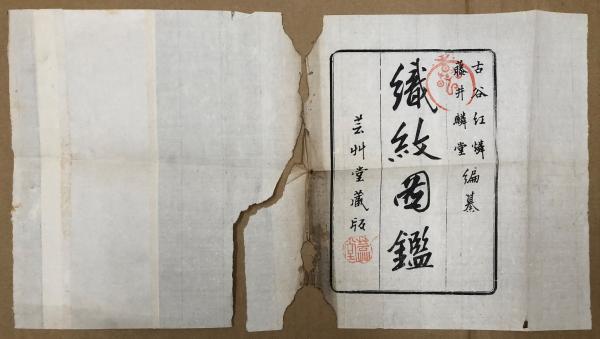 古谷红㷠
藤井麟堂
編纂
織紋圖鑑
芸艸堂蔵版